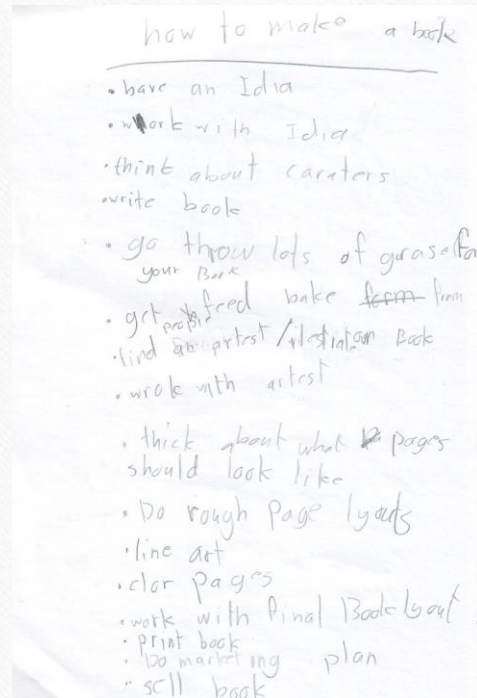 how to make a book
• have an Idia
• work with Idia
• think about caraters
• write book
• go throw lots of (for
your Book
• get feed bake from
• find artest / Book
• wrok with artest
• thick about what pages
should look like
• Do rough page lyouts
• line art
• clor pages
• work with final Book lyout
• print book
• Do marketing plan
• sell book